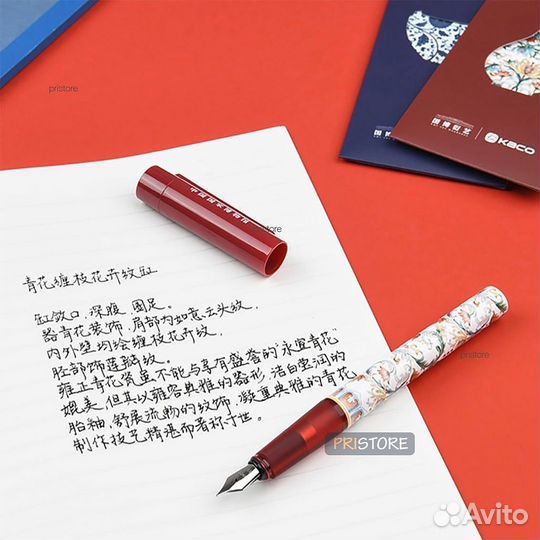 pristore
国博衍艺
KACO
中国国家博物馆
pristore
青花缠枝花卉纹缸
缸敛口，深腹，圈足。
器青花装饰，肩部为如意云头纹，
内外壁均绘缠枝花卉纹，
胫部饰莲瓣纹。
雍正青花瓷虽不能与享有盛誉的“永宣青花”
媲美，但其以雍容典雅的器形，洁白莹润的
胎釉，舒展流畅的纹饰，舒夏典雅的青花
制作技艺精湛而著称于世。
pristore
PRISTORE
Avito